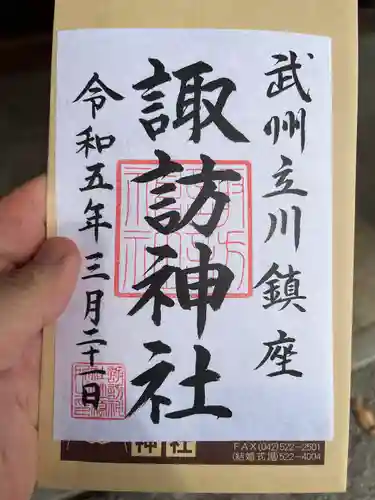 武州立川鎮座
諏訪神社
令和五年三月二十一日
神社
FAX(042)522-2501
(結婚式場)522-4004